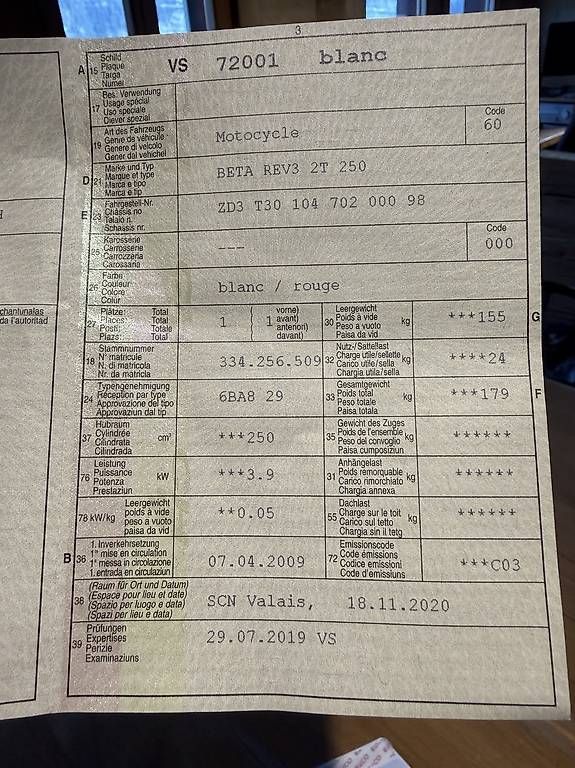 3
A 15 Schild
Plaque
Targa
Numer
VS 72001 blanc
17 Bes. Verwendung
Usage spécial
Uso speciale
Diever spezial
19 Art des Fahrzeugs
Genre de véhicule
Genere di veicolo
Gener dal vehichel
Motocycle
Code
60
D 21 Marke und Typ
Marque et type
Marca e tipo
Marca e tip
BETA REV3 2T 250
E 23 Fahrgestell-Nr.
Châssis no
Telaio n.
Schassis nr.
ZD3 T30 104 702 000 98
25 Karosserie
Carrosserie
Carrozzeria
Carossaria
---
Code
000
26 Farbe
Couleur
Colore
Colur
blanc / rouge
27 Plätze: Total
Places: Total
Posti: Totale
Plazs: Total
1 ( 1 vorne)
avant)
anteriori)
davant)
30 Leergewicht
Poids à vide
Peso a vuoto
Paisa da vid
kg
***155
G
18 Stammnummer
N° matricule
N. di matricola
Nr. da matricla
334.256.509
32 Nutz-/Sattellast
Charge utile/sellette
Carico utile/sella
Chargia utila/sella
kg
****24
24 Typengenehmigung
Réception par type
Approvazione del tipo
Approvaziun dal tip
6BA8 29
33 Gesamtgewicht
Poids total
Peso totale
Paisa totala
kg
***179
F
37 Hubraum
Cylindrée
Cilindrata
Cilindrada
cm³
***250
35 Gewicht des Zuges
Poids de l'ensemble
Peso del convoglio
Paisa cumposiziun
kg
******
76 Leistung
Puissance
Potenza
Prestaziun
kW
***3.9
31 Anhängelast
Poids remorquable
Carico rimorchiato
Chargia annexa
kg
******
78 kW/kg
Leergewicht
poids à vide
peso a vuoto
paisa da vid
**0.05
55 Dachlast
Charge sur le toit
Carico sul tetto
Chargia sin il tetg
kg
******
B 36 1. Inverkehrsetzung
1re mise en circulation
1a messa in circolazione
1. entrada en circulaziun
07.04.2009
72 Emissionscode
Code émissions
Codice emissioni
Code d'emissiuns
***C03
38 (Raum für Ort und Datum)
(Espace pour lieu et date)
(Spazio per luogo e data)
(Spazi per lieu e data)
SCN Valais, 18.11.2020
39 Prüfungen
Expertises
Perizie
Examinaziuns
29.07.2019 VS
da l'autoritad